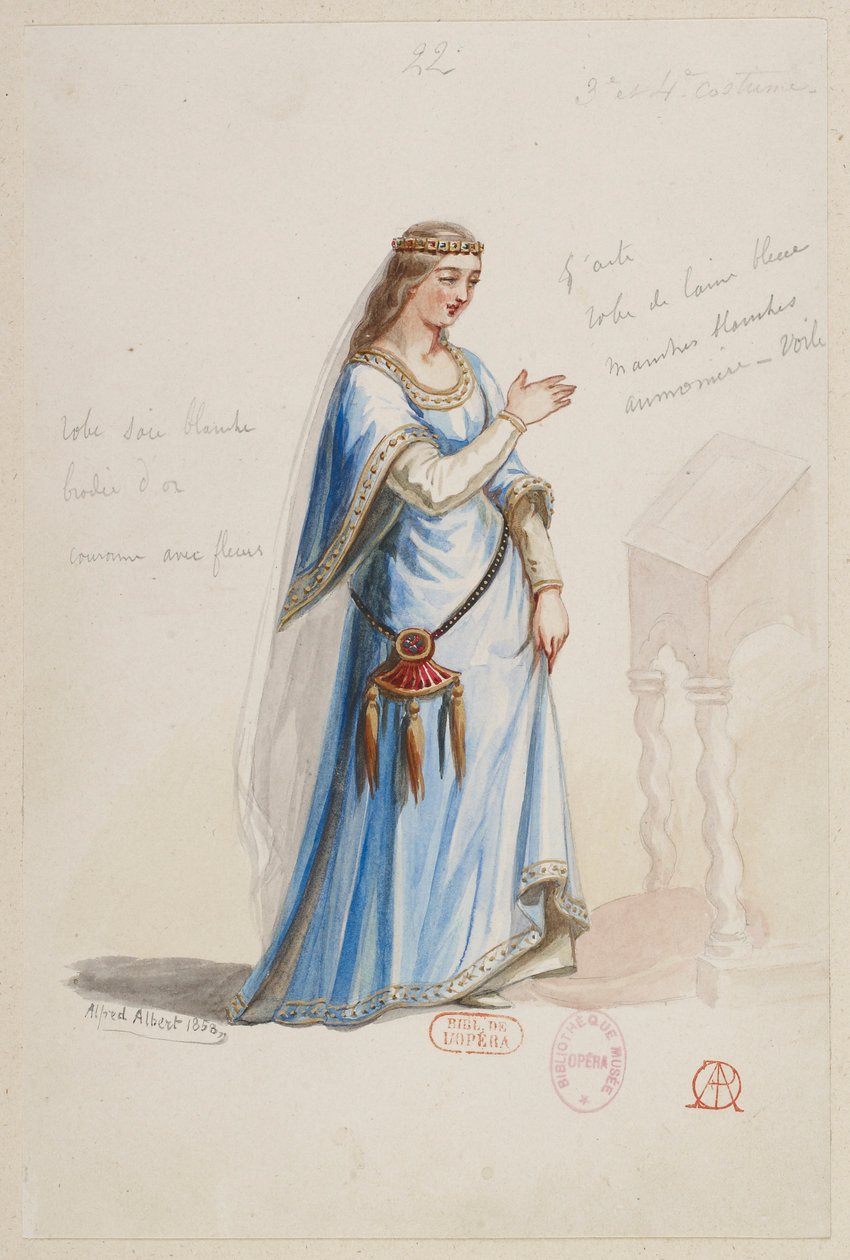 22
3e et 4e costume
4e acte
robe de laine bleue
manches blanches
aumonière - Voile
robe soie blanche
brodée d'or
couronne avec fleurs
Alfred Albert 1858
BIBL. DE
L'OPÉRA
BIBLIOTHÈQUE MUSÉE
OPÉRA